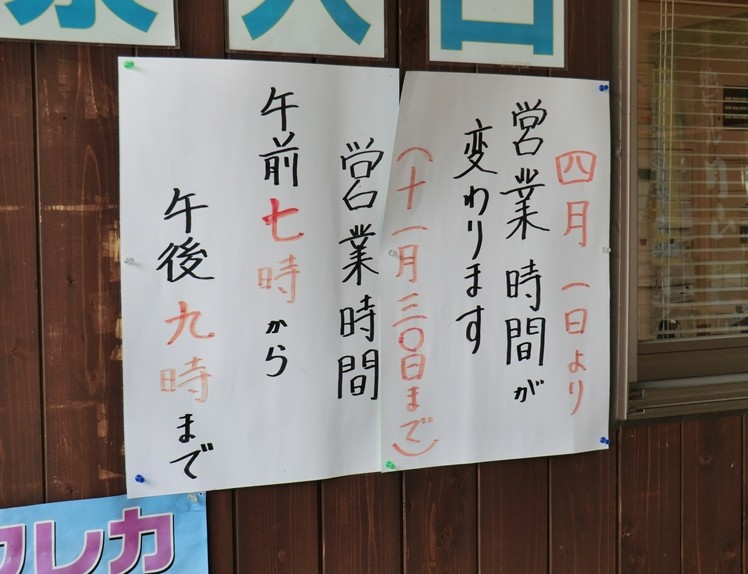 四月一日より
営業時間が
変わります
（十一月三〇日まで）
営業時間
午前七時から
午後九時まで
レカ